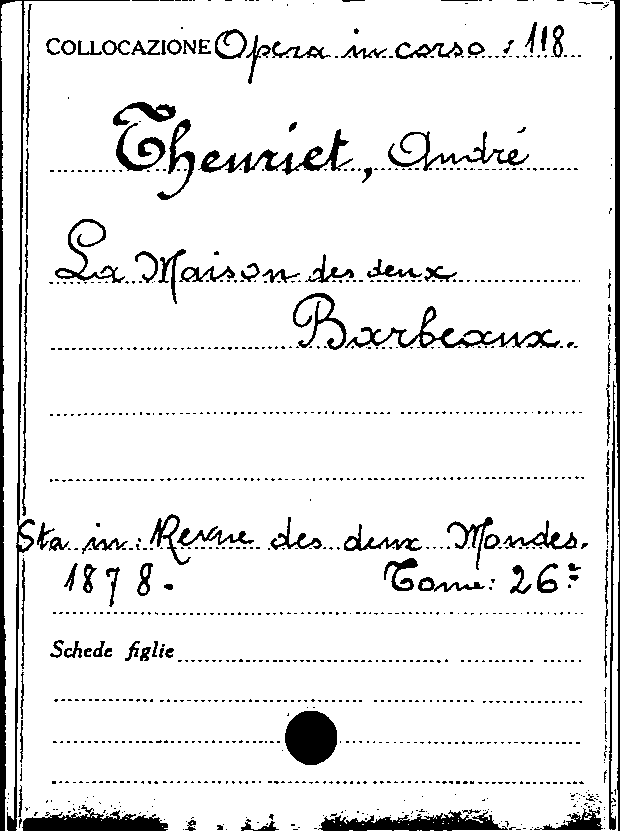 COLLOCAZIONE Opera in corso : 118
Theuriet, André
La Maison des deux
Barbeaux.
Sta in: Revue des deux Mondes.
1878. Tome: 26:
Schede figlie